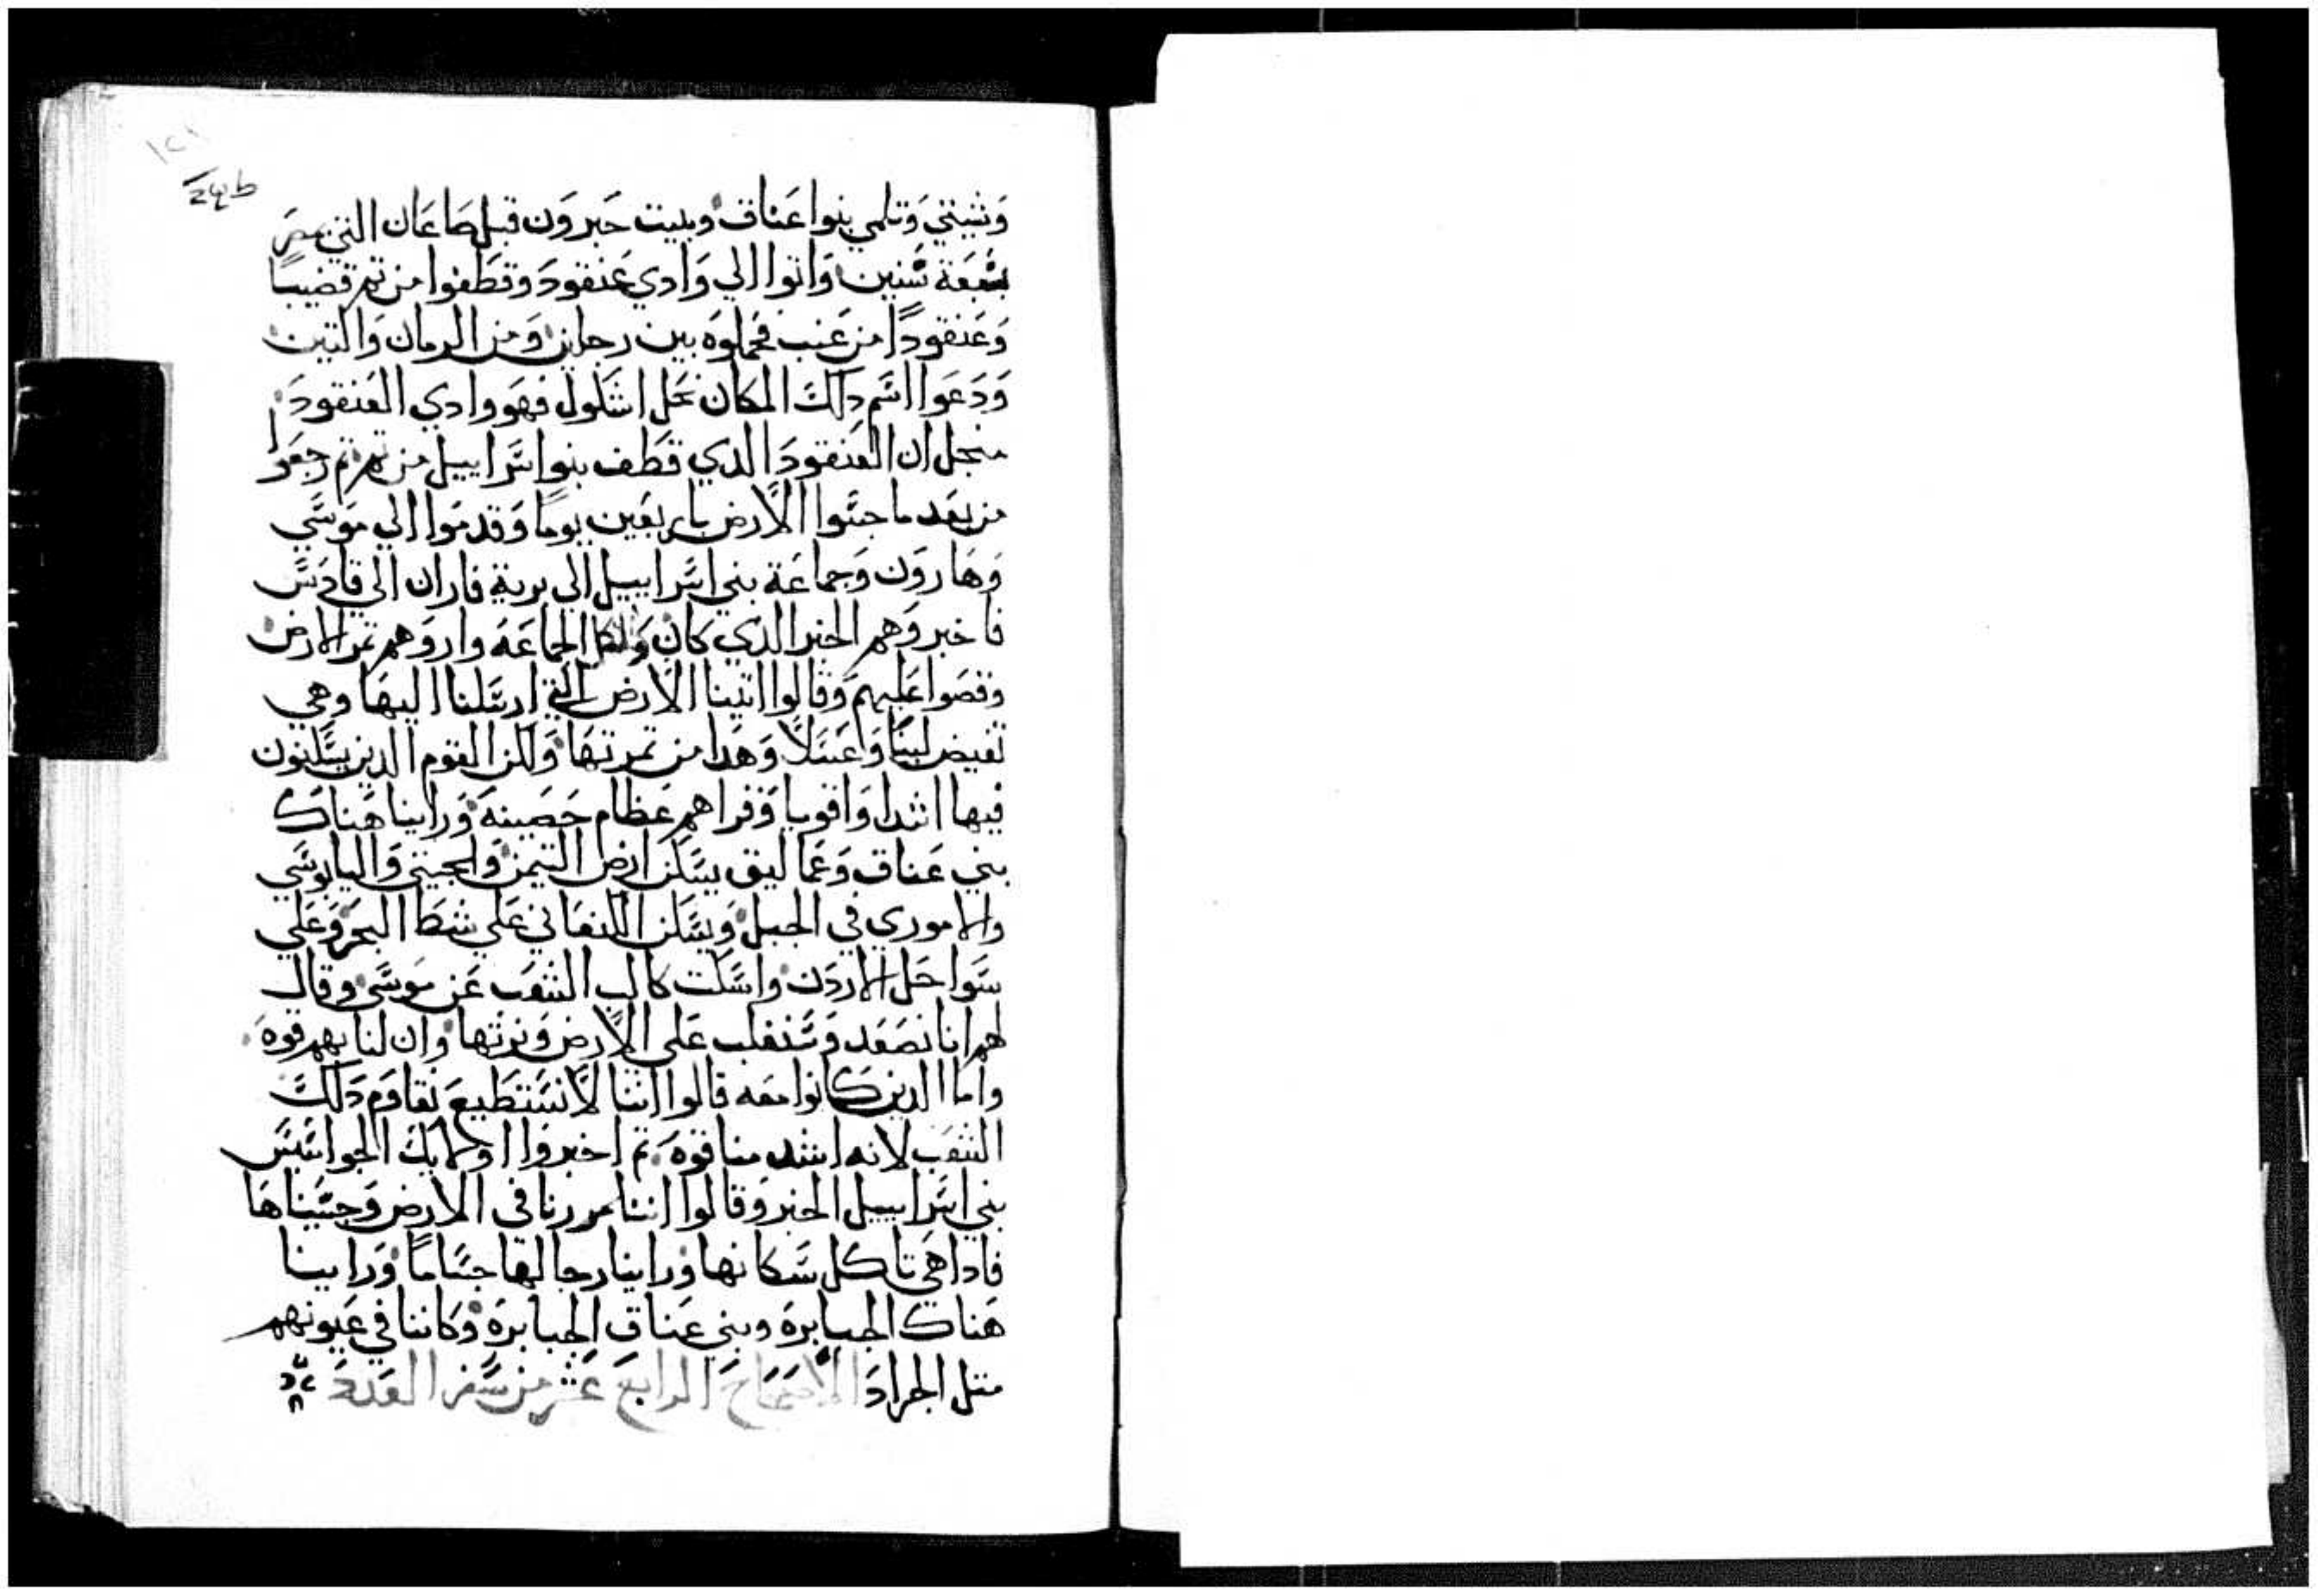 وَشيتي وَتلمي بنوا عَناق وبنيت حَبروَن قبل صَاعَان التي بمصَر
بسَبعَة سَنين وَاتوا الي وَادي عَنقودَ وقطَفوا من تم قضيبًا
وَعَنقودًا من عَنب فحَملوَه بين رجلين وَمن الرمان وَالتين
وَدَعَوا اسَم دلكَ المكَان نحَل اشَلول فهَو وادي العَنقودَ
منجل ان العَنقودَ الدي قطَف بنوا اسَراييل من تم تم رجعَوا
من بعَد ما جسَوا الاَرض باربعَين يومًا وَقدموَا الي موَسَي
وَهَاروَن وَجماعَة بني اسَراييل الي برية فاران الي قادَسَ
فاخبروَهم الخبر الدي كان وَلكل الجماعَة واروَهم تمر الارض
وقصَوا عَليهم وَقالوا اتينا الاَرض التي ارسَلتنا اليهَا وهي
تفيض لبنًا وَعَسَلاً وَهَدا من تمرتهَا وَلكن القوَم الدين يسَكنون
فيها اشدا وَاقويا وَقراهم عَظام حَصَينة وَراينا هَناك
بني عَناق وَعَماليق يسَكن ارض التيمن وَالحيتي وَاليابوسَي
والاموري في الجبل وَيسَكن الكنعَاني عَلي شط البحَر وَعَلي
سَواحَل الاردَن واسَكت كالب الشعَب عَن موَسَي وقال
لهم انا نصَعَد وَسَنغلب عَلي الاَرض وَنرتها وَان لنا بهم قوة
وَاما الدين كانوا معَه قالوا اننا لاَ نسَتطَيع نقاوَم دَلكَ
الشعَب لانه اشد منا قوة تم اخبروَا اولايك الجواسَيسَ
بني اسَراييل الخبر وَقالوا اننا مررنا في الارض وَجسَيناهَا
فادا هَي تاكل سَكانها وَراينا رجالها جسَامًا وَراينا
هَناك الجبابرة وبني عَناق الجبابرَة وَكاننا في عَيونهم
متل الجرادَ الاصَحَاحَ الرابعَ عَشر من سَفر العَدَدَ